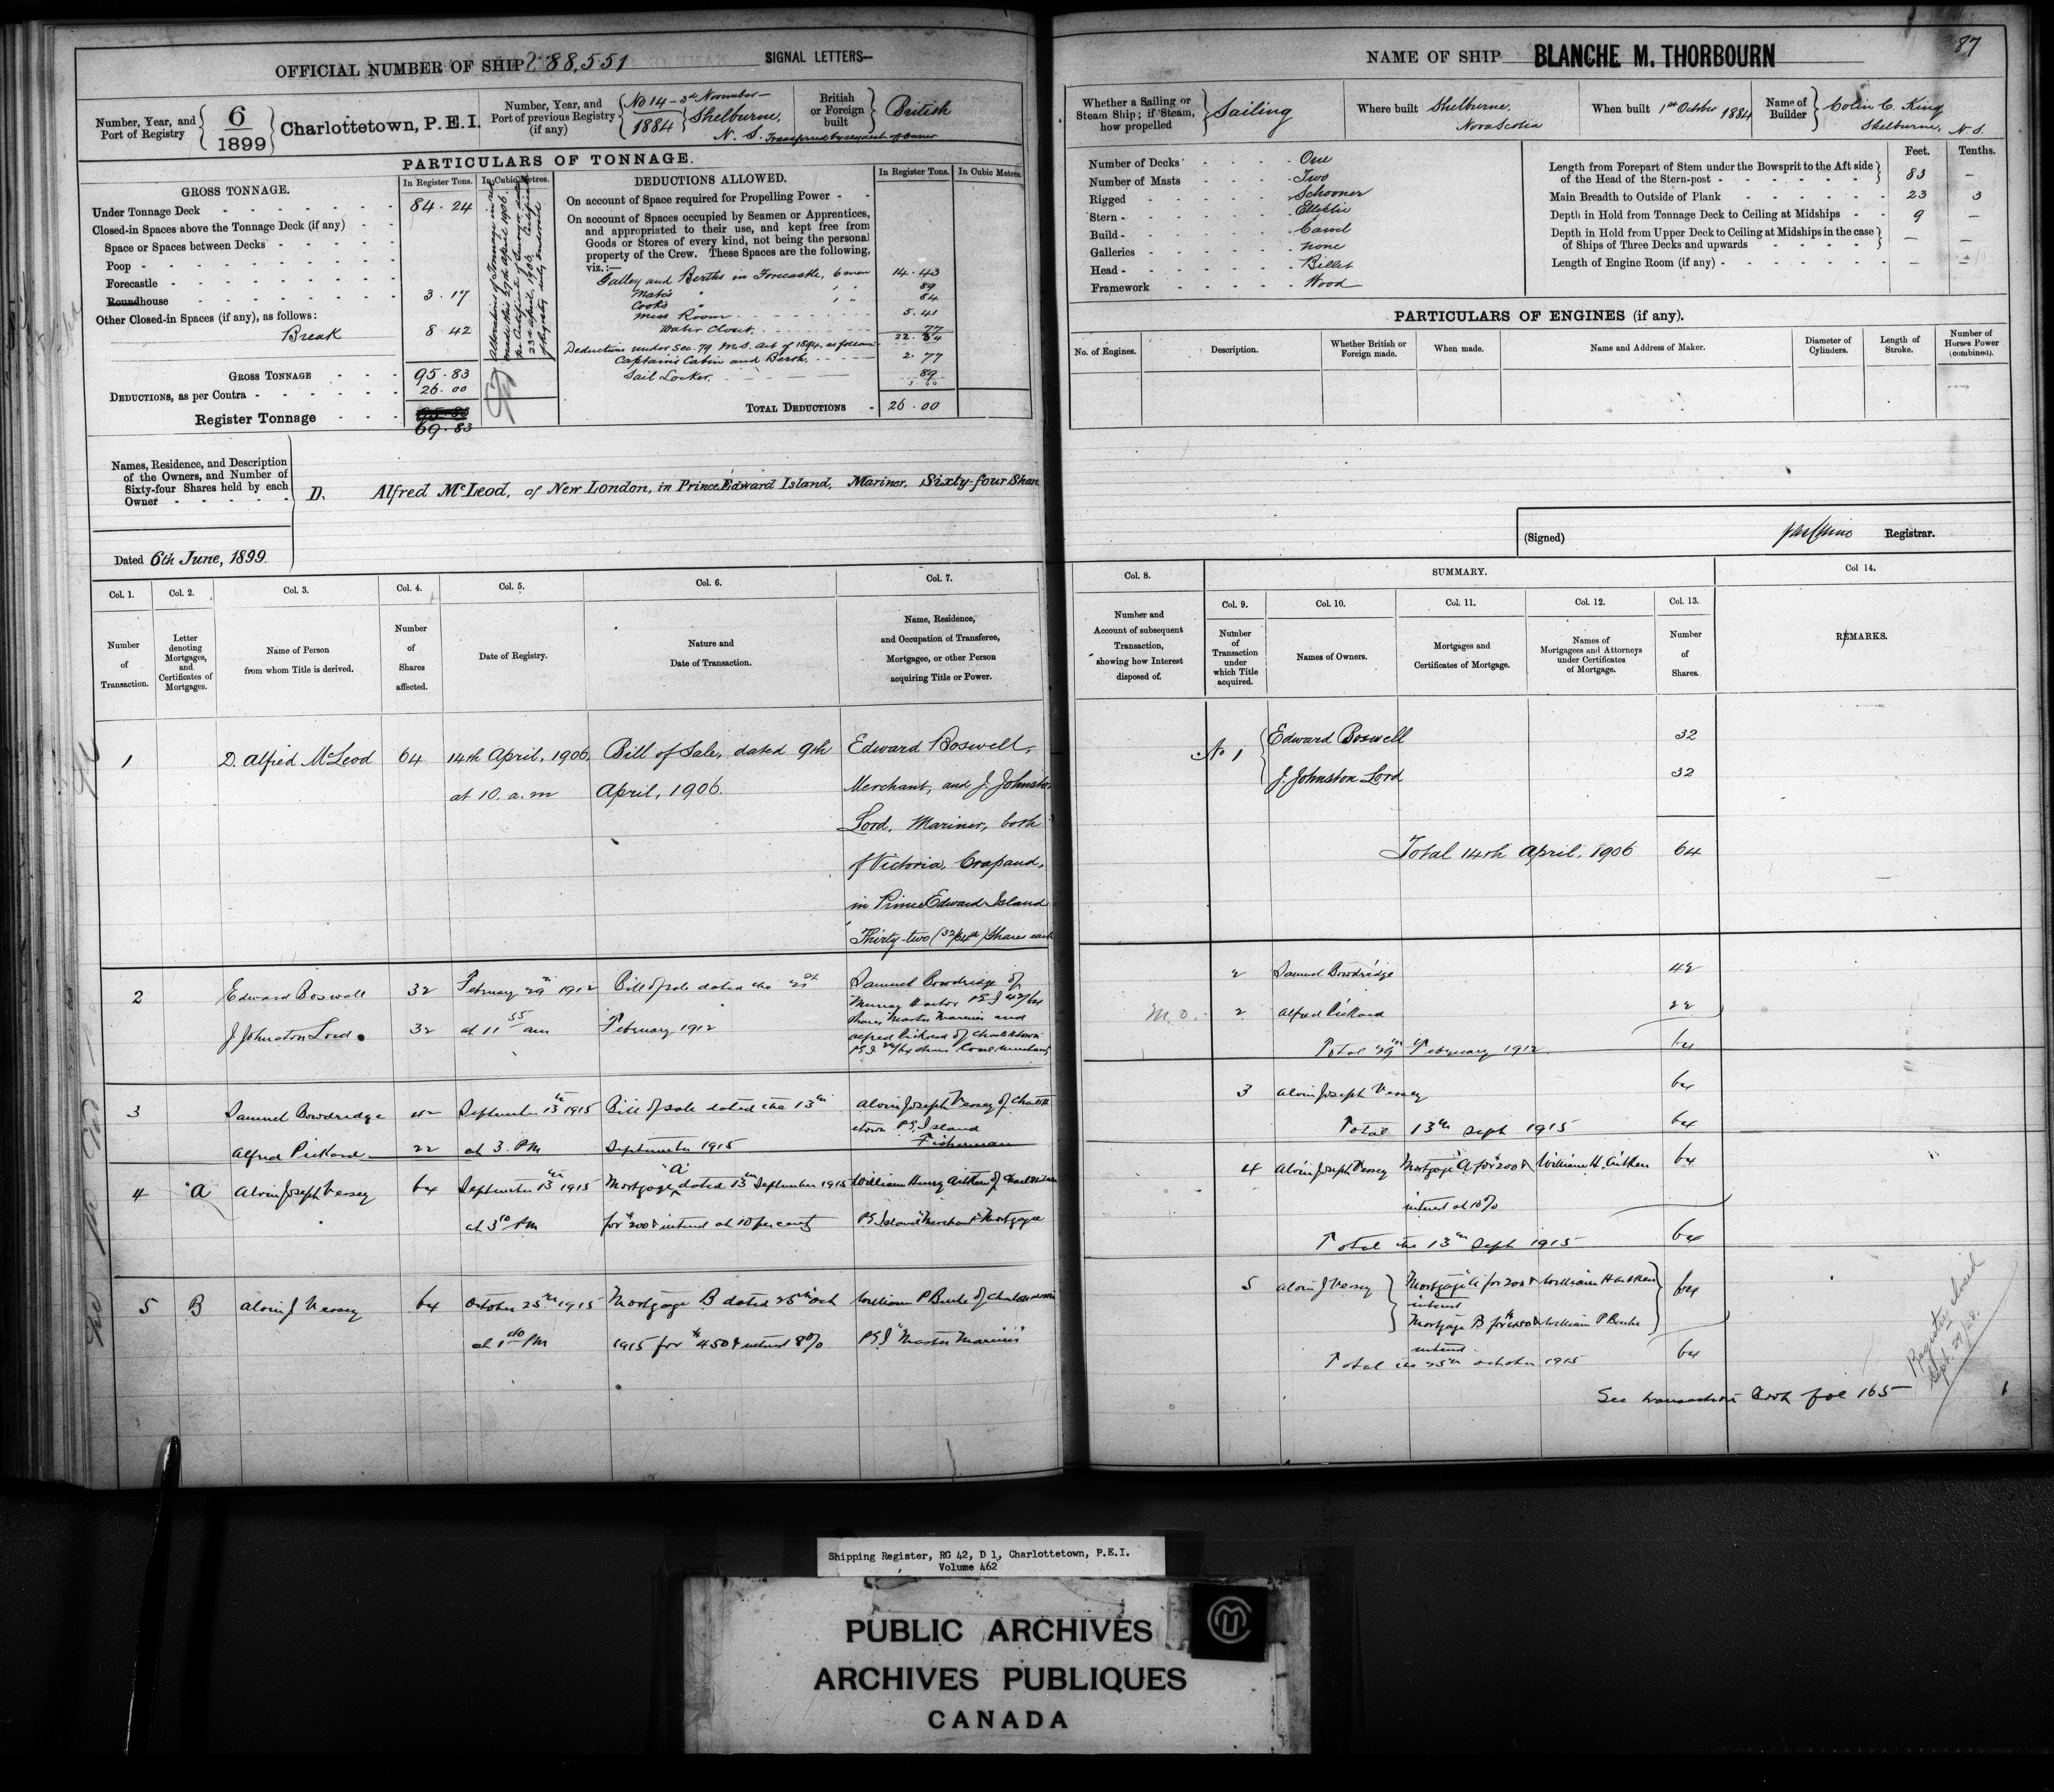 OFFICIAL NUMBER OF SHIP 88,551
SIGNAL LETTERS—
Number, Year, and Port of Registry
6
1899
Charlottetown, P.E.I.
Number, Year, and Port of previous Registry (if any)
No 14 - 3rd November - 1884
Shelburne, N. S. Transferred by request of Owner
British or Foreign built
British
PARTICULARS OF TONNAGE.
GROSS TONNAGE.
In Register Tons.
In Cubic Metres.
Under Tonnage Deck 84.24
Closed-in Spaces above the Tonnage Deck (if any)
Space or Spaces between Decks
Poop
Forecastle
Roundhouse 3.17
Other Closed-in Spaces (if any), as follows:
Break 8.42
GROSS TONNAGE 95.83
DEDUCTIONS, as per Contra 26.00
Register Tonnage 95.83
69.83
DEDUCTIONS ALLOWED.
In Register Tons. In Cubic Metres.
On account of Space required for Propelling Power
On account of Spaces occupied by Seamen or Apprentices,
and appropriated to their use, and kept free from
Goods or Stores of every kind, not being the personal
property of the Crew. These Spaces are the following,
viz.:—
Galley and Berths in Forecastle, 6 men 14.43
Mate's " 1 " 89
Cook's " 1 " 84
Mess Room 5.41
Water Closet 77
22.34
Deductions under Sec. 79 M.S. Act of 1894, as follows:
Captain's Cabin and Berth 2.77
Sail Locker 89
TOTAL DEDUCTIONS 26.00
Names, Residence, and Description
of the Owners, and Number of
Sixty-four Shares held by each
Owner
D. Alfred McLeod, of New London, in Prince Edward Island, Mariner, Sixty-four Shares
Dated 6th June, 1899.
87
NAME OF SHIP BLANCHE M. THORBOURN
Whether a Sailing or Steam Ship; if Steam, how propelled
Sailing
Where built Shelburne, Nova Scotia
When built 1st October 1884
Name of Builder
Colin C. King
Shelburne, N.S.
Number of Decks One
Number of Masts Two
Rigged Schooner
Stern Elliptic
Build Carvel
Galleries None
Head Billet
Framework Wood
Feet. Tenths.
Length from Forepart of Stem under the Bowsprit to the Aft side
of the Head of the Stern-post 83 —
Main Breadth to Outside of Plank 23 3
Depth in Hold from Tonnage Deck to Ceiling at Midships 9 —
Depth in Hold from Upper Deck to Ceiling at Midships in the case
of Ships of Three Decks and upwards — —
Length of Engine Room (if any) — —
PARTICULARS OF ENGINES (if any).
No. of Engines.
Description.
Whether British or Foreign made.
When made.
Name and Address of Maker.
Diameter of Cylinders.
Length of Stroke.
Number of Horses Power (combined).
(Signed)
Registrar.
Col. 1. Col. 2. Col. 3. Col. 4. Col. 5. Col. 6. Col. 7.
Number of Transaction.
Letter denoting Mortgages, and Certificates of Mortgages.
Name of Person from whom Title is derived.
Number of Shares affected.
Date of Registry.
Nature and Date of Transaction.
Name, Residence, and Occupation of Transferee, Mortgagee, or other Person acquiring Title or Power.
1 D. Alfred McLeod 64 14th April, 1906, Bill of Sale, dated 9th Edward Boswell,
at 10. a.m April, 1906. Merchant, and J. Johnston
Lord, Mariner, both
of Victoria, Crapaud,
in Prince Edward Island
Thirty-two (32/64th) Shares each
2 Edward Boswell 32 February 29th 1912 Bill of sale dated the 21st Samuel Bowdridge of
Murray Harbor P E I 42/64
J Johnston Lord 32 at 11 55 am February 1912 Shares Master Mariner and
Alfred Pickard of Charlottetown
P E I 22/64 shares Coal Merchant
3 Samuel Bowdridge 42 September 13th 1915 Bill of sale dated the 13th Alvin Joseph Vessey of Charlotte
town P E Island
Alfred Pickard 22 at 3. PM September 1915 Fisherman
4 "A" Alvin Joseph Vessey 64 September 13th 1915 Mortgage "A" dated 13th September 1915 William Henry Aitken of Charlottetown
at 3 10 PM for $200 & interest at 10 per cent P E Island "Merchant" Mortgagee
5 B Alvin J Vessey 64 October 25th 1915 Mortgage B dated 25th Oct William P Burke of Charlottetown
at 1 PM 1915 for $450 & interest 8% P E I "Master Mariner"
Col. 8.
Number and Account of subsequent Transaction, showing how Interest disposed of.
SUMMARY.
Col. 9. Col. 10. Col. 11. Col. 12. Col. 13.
Number of Transaction under which Title acquired.
Names of Owners.
Mortgages and Certificates of Mortgage.
Names of Mortgagees and Attorneys under Certificates of Mortgage.
Number of Shares.
Col 14.
REMARKS.
No 1 Edward Boswell 32
J. Johnston Lord 32
Total 14th April, 1906 64
2 Samuel Bowdridge 42
M.O. 2 Alfred Pickard 22
Total 29th February 1912 64
3 Alvin Joseph Vessey 64
Total 13th Sept 1915 64
4 Alvin Joseph Vessey Mortgage "A" for $200 & William H. Aitken 64
interest at 10%
Total the 13th Sept 1915 64
5 Alvin J Vessey Mortgage "A" for 200 & William H Aitken 64
interest
Mortgage B for $450 & William P Burke
interest
Total the 25th October 1915 64
See transaction Book fol 165
Registry closed
Sept. 29/28.
Shipping Register, RG 42, D 1, Charlottetown, P.E.I.
Volume 462
PUBLIC ARCHIVES
ARCHIVES PUBLIQUES
CANADA